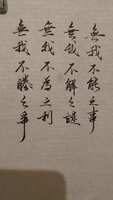 無我不能之事
無我不解之謎
無我不為之利
無我不勝之爭